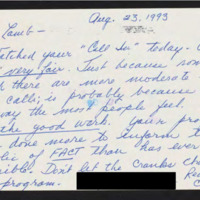 Aug. 23, 1993
Lamb -
tched your "Call In" today.
very fair. Just because som
d there are more moderate
calls; is probably because
way the most people feel.
the good work. Your pro
done more to inform t
lic of FACT than has ever
ible. Don't let the cranks cha
program.